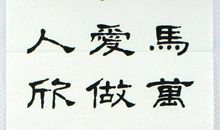 馬萬
愛做
人欣